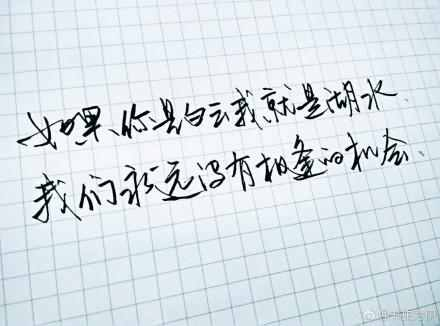 如果、你是白云我就是湖水、
我们永远没有相逢的机会、